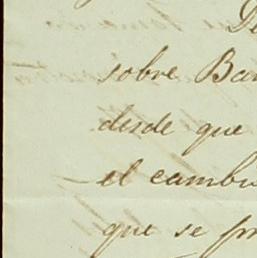 De
sobre Ban
desde que
el cambi
que se pr